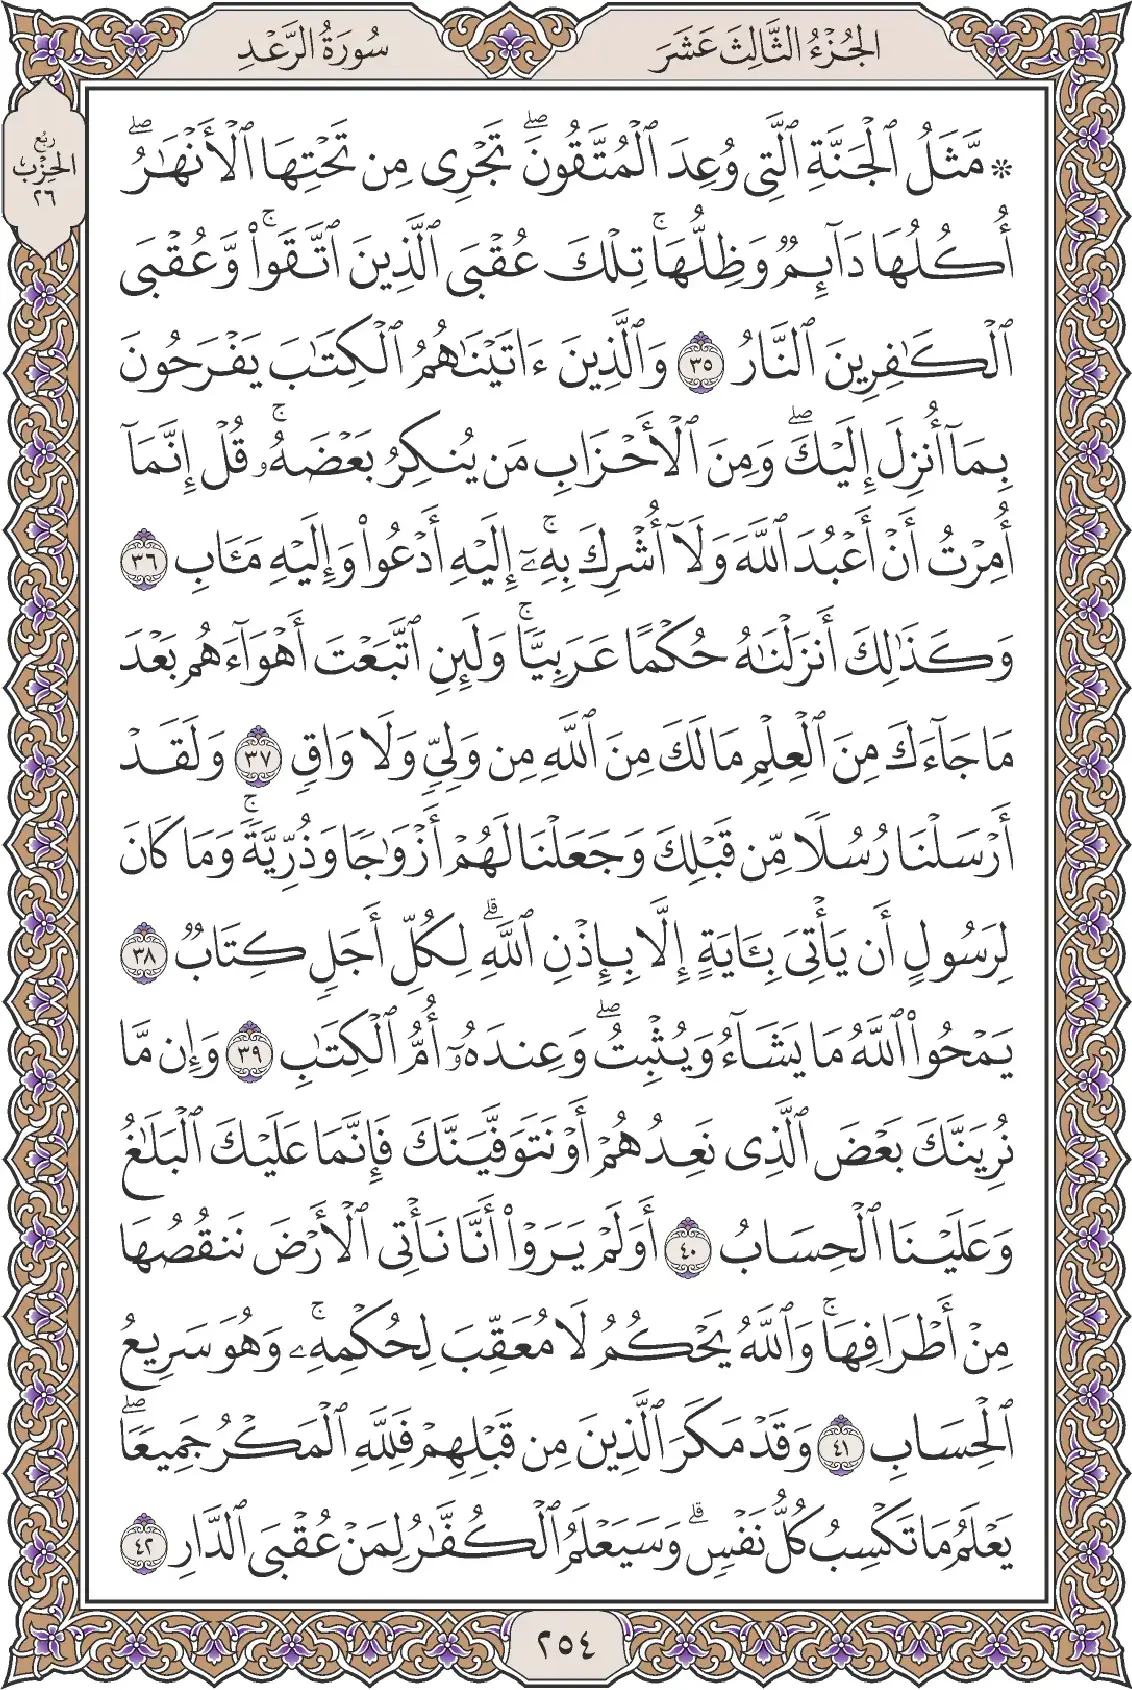 الجُزْءُ الثَّالِثَ عَشَرَ
سُورَةُ الرَّعْدِ
رُبْعُ
الحِزْبِ
٢٦
۞ مَّثَلُ ٱلْجَنَّةِ ٱلَّتِى وُعِدَ ٱلْمُتَّقُونَۖ تَجْرِى مِن تَحْتِهَا ٱلْأَنْهَٰرُۖ
أُكُلُهَا دَآئِمٌ وَظِلُّهَاۚ تِلْكَ عُقْبَى ٱلَّذِينَ ٱتَّقَوا۟ۚ وَّعُقْبَى
ٱلْكَٰفِرِينَ ٱلنَّارُ ٣٥ وَٱلَّذِينَ ءَاتَيْنَٰهُمُ ٱلْكِتَٰبَ يَفْرَحُونَ
بِمَآ أُنزِلَ إِلَيْكَۖ وَمِنَ ٱلْأَحْزَابِ مَن يُنكِرُ بَعْضَهُۥۚ قُلْ إِنَّمَآ
أُمِرْتُ أَنْ أَعْبُدَ ٱللَّهَ وَلَآ أُشْرِكَ بِهِۦٓۚ إِلَيْهِ أَدْعُوا۟ وَإِلَيْهِ مَـَٔابِ ٣٦
وَكَذَٰلِكَ أَنزَلْنَٰهُ حُكْمًا عَرَبِيًّاۚ وَلَئِنِ ٱتَّبَعْتَ أَهْوَآءَهُم بَعْدَ
مَا جَآءَكَ مِنَ ٱلْعِلْمِ مَا لَكَ مِنَ ٱللَّهِ مِن وَلِىٍّ وَلَا وَاقٍ ٣٧ وَلَقَدْ
أَرْسَلْنَا رُسُلًا مِّن قَبْلِكَ وَجَعَلْنَا لَهُمْ أَزْوَٰجًا وَذُرِّيَّةًۚ وَمَا كَانَ
لِرَسُولٍ أَن يَأْتِىَ بِـَٔايَةٍ إِلَّا بِإِذْنِ ٱللَّهِۗ لِكُلِّ أَجَلٍ كِتَابٌ ٣٨
يَمْحُوا۟ ٱللَّهُ مَا يَشَآءُ وَيُثْبِتُۖ وَعِندَهُۥٓ أُمُّ ٱلْكِتَٰبِ ٣٩ وَإِن مَّا
نُرِيَنَّكَ بَعْضَ ٱلَّذِى نَعِدُهُمْ أَوْ نَتَوَفَّيَنَّكَ فَإِنَّمَا عَلَيْكَ ٱلْبَلَٰغُ
وَعَلَيْنَا ٱلْحِسَابُ ٤٠ أَوَلَمْ يَرَوْا۟ أَنَّا نَأْتِى ٱلْأَرْضَ نَنقُصُهَا
مِنْ أَطْرَافِهَاۚ وَٱللَّهُ يَحْكُمُ لَا مُعَقِّبَ لِحُكْمِهِۦۚ وَهُوَ سَرِيعُ
ٱلْحِسَابِ ٤١ وَقَدْ مَكَرَ ٱلَّذِينَ مِن قَبْلِهِمْ فَلِلَّهِ ٱلْمَكْرُ جَمِيعًاۖ
يَعْلَمُ مَا تَكْسِبُ كُلُّ نَفْسٍۗ وَسَيَعْلَمُ ٱلْكُفَّٰرُ لِمَنْ عُقْبَى ٱلدَّارِ ٤٢
٢٥٤